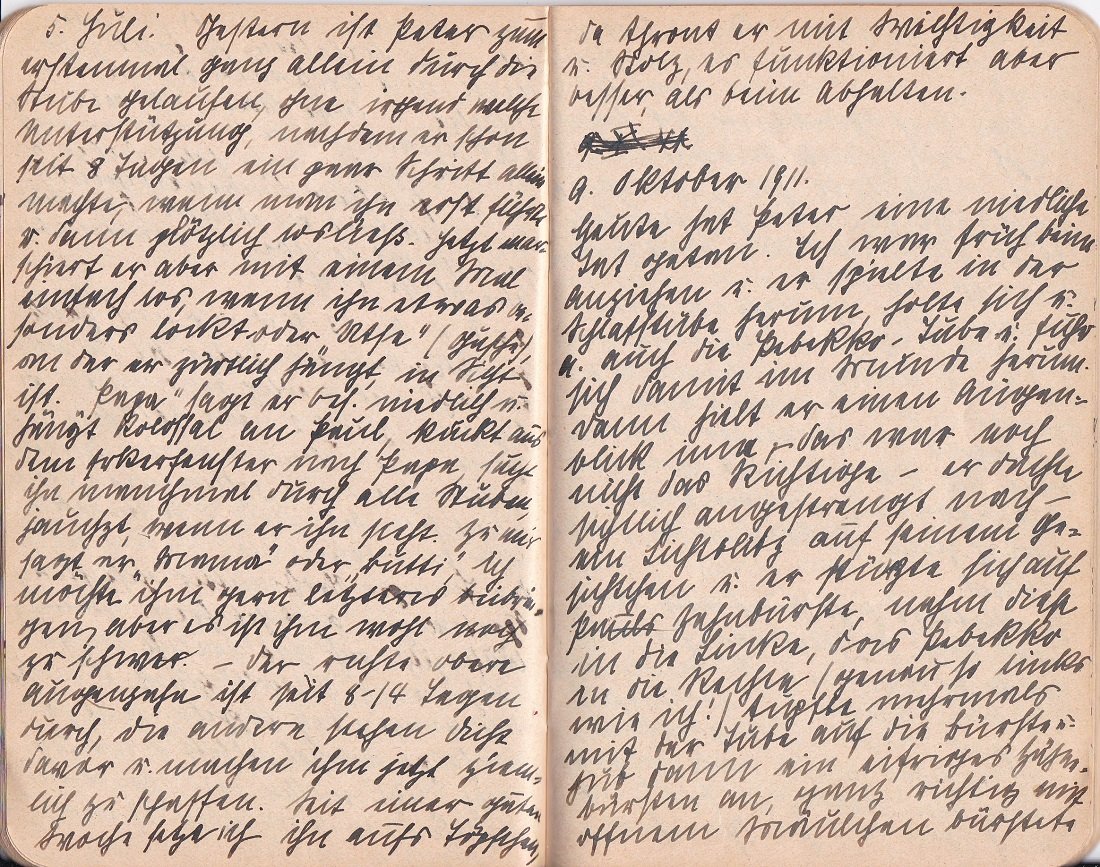 5. Juli. Gestern ist Peter zum
erstenmal ganz allein durch die
Stube gelaufen, ohne irgend welche
Unterstützung, nachdem er schon
seit 8 Tagen ein paar Schritt allein
machte, wenn man ihn erst führte
u. dann plötzlich losließ. Jetzt mar-
schiert er aber mit einem Mal
einfach los, wenn ihn etwas be-
sonders lockt oder "Utse" (
an der er zärtlich hängt, in Sicht
ist. "Papa" sagt er niedlich u.
hängt kolossal an Paul, kuckt aus
dem Erkerfenster nach Papa, sucht
ihn manchmal durch alle Stuben,
jauchzt, wenn er ihn sieht. Zu mir
sagt er "Mama" oder "Mutti". Ich
möchte ihm gern letzteres beibrin-
gen, aber es ist ihm wohl noch
zu schwer. – Der rechte obere
Augenzahn ist seit 8-14 Tagen
durch, die andern stehen dicht
davor u. machen ihm jetzt ziem-
lich zu schaffen. Seit einer guten
Woche setze ich ihn aufs Töpfchen,
da thront er mit Wichtigkeit
u. Stolz, es funktioniert aber
besser, als beim Abhalten.
9. Oktober 1911.
Heute hat Peter eine niedliche
Tat getan. Ich war früh beim
Anziehen u. er spielte in der
Schlafstube herum, holte sich u.
a. auch die Pebekko-Tube u. fuhr
sich damit im Munde herum.
Dann hielt er einen Augen-
blick inne, – das war noch
nicht das Richtige – er dachte
sichtlich angestrengt nach –
ein Lichtblitz auf seinem Ge-
sichtchen u. er stürzte sich auf
Pauls Zahnbürste, nahm diese
in die Linke, das Pebekko
in die Rechte (genau so links
wie ich!) tupfte mehrmals
mit der Tube auf die Bürste u.
hub dann ein eifriges Zähne-
bürsten an, ganz richtig mit
offnem Mäulchen bürstete